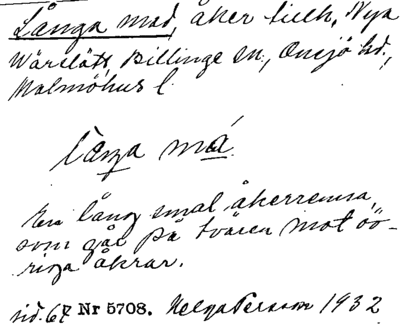 Långa mad, åker tillh. Nya
Wärslätt, Billinge sn., Onsjö hd.,
Malmöhus l.
långa má.
En lång smal åkerremsa,
som går på tvären mot öv-
riga åkrar.
sid. 67 Nr 5708. Helga Persson 1932